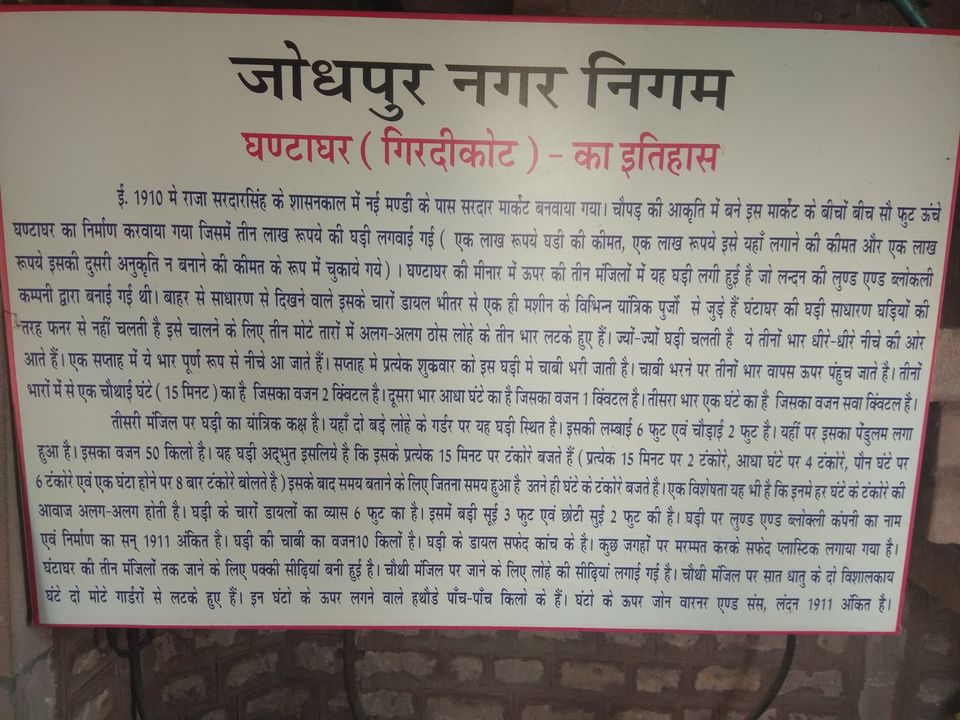 जोधपुर नगर निगम
घण्टाघर ( गिरदीकोट ) - का इतिहास
ई. 1910 मे राजा सरदारसिंह के शासनकाल में नई मण्डी के पास सरदार मार्केट बनवाया गया। चौपड़ की आकृति में बने इस मार्केट के बीचों बीच सौ फुट ऊंचे
घण्टाघर का निर्माण करवाया गया जिसमें तीन लाख रूपये की घड़ी लगवाई गई ( एक लाख रूपये घडी की कीमत, एक लाख रूपये इसे यहाँ लगाने की कीमत और एक लाख
रूपये इसकी दुसरी अनुकृति न बनाने की कीमत के रूप में चुकाये गये ) । घण्टाघर की मीनार में ऊपर की तीन मंजिलों में यह घड़ी लगी हुई है जो लन्दन की लुण्ड एण्ड ब्लोकली
कम्पनी द्वारा बनाई गई थी। बाहर से साधारण से दिखने वाले इसके चारों डायल भीतर से एक ही मशीन के विभिन्न यांत्रिक पुर्जो से जुड़े हैं घंटाघर की घड़ी साधारण घड़ियों की
तरह फनर से नहीं चलती है इसे चालने के लिए तीन मोटे तारों में अलग-अलग ठोस लोहे के तीन भार लटके हुए हैं। ज्यों-ज्यों घड़ी चलती है ये तीनों भार धीरे-धीरे नीचे की ओर
आते हैं। एक सप्ताह में ये भार पूर्ण रूप से नीचे आ जाते हैं। सप्ताह मे प्रत्येक शुकवार को इस घड़ी मे चाबी भरी जाती है। चाबी भरने पर तीनों भार वापस ऊपर पहुंच जाते है। तीनों
भारों में से एक चौथाई घंटे ( 15 मिनट ) का है जिसका वजन 2 क्विंटल है। दूसरा भार आधा घंटे का है जिसका वजन 1 क्विंटल है। तीसरा भार एक घंटे का है जिसका वजन सवा क्विंटल है।
तीसरी मंजिल पर घड़ी का यांत्रिक कक्ष है। यहाँ दो बड़े लोहे के गर्डर पर यह घड़ी स्थित है। इसकी लम्बाई 6 फुट एवं चौड़ाई 2 फुट है। यहीं पर इसका पेंडुलम लगा
हुआ है। इसका वजन 50 किलो है। यह घड़ी अद्भुत इसलिये है कि इसके प्रत्येक 15 मिनट पर टंकोरे बजते हैं ( प्रत्येक 15 मिनट पर 2 टंकोरे, आधा घंटे पर 4 टंकोरे, पौन घंटे पर
6 टकोरे एवं एक घंटा होने पर 8 बार टंकोरे बोलते है ) इसके बाद समय बताने के लिए जितना समय हुआ है उतने ही घंटे के टंकोरे बजते है। एक विशेषता यह भी है कि इनमे हर घंटे के टंकोरे की
आवाज अलग-अलग होती है। घड़ी के चारों डायलों का व्यास 6 फुट का है। इसमें बड़ी सूई 3 फुट एवं छोटी सुई 2 फुट की है। घड़ी पर लुण्ड एण्ड ब्लोक्ली कंपनी का नाम
एवं निर्माण का सन् 1911 अंकित है। घड़ी की चाबी का वजन10 किलों है। घड़ी के डायल सफेद कांच के है। कुछ जगहों पर मरम्मत करके सफेद प्लास्टिक लगाया गया है।
घंटाघर की तीन मंजिलों तक जाने के लिए पक्की सीढ़ियां बनी हुई है। चौथी मंजिल पर जाने के लिए लोहे की सीढ़ियां लगाई गई है। चौथी मंजिल पर सात धातु के दो विशालकाय
घंटे दो मोटे गार्डरों से लटके हुए हैं। इन घंटो के ऊपर लगने वाले हथौडे पाँच-पाँच किलो के हैं। घंटो के ऊपर जोन वारनर एण्ड संस, लंदन 1911 अंकित है।